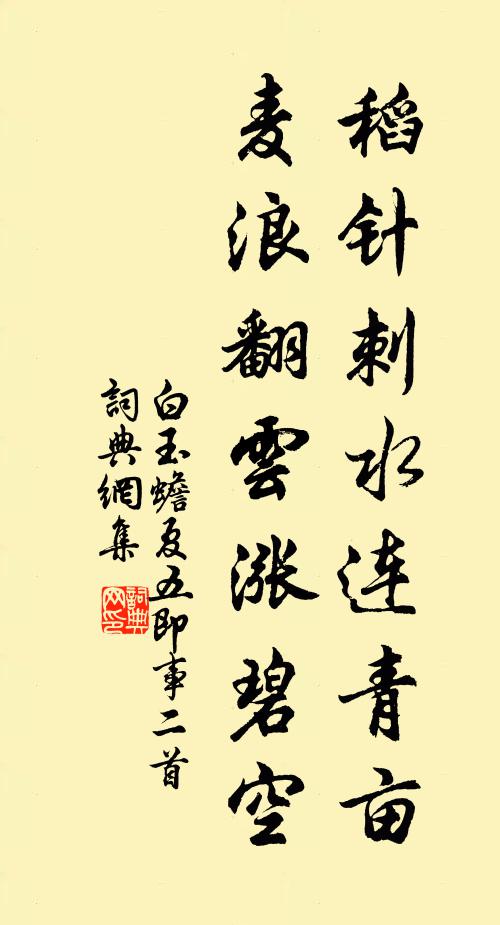 稻针刺水连青亩
麦浪翻雲涨碧空
白玉蟾夏五即事二首
詞典網集
詞典网印